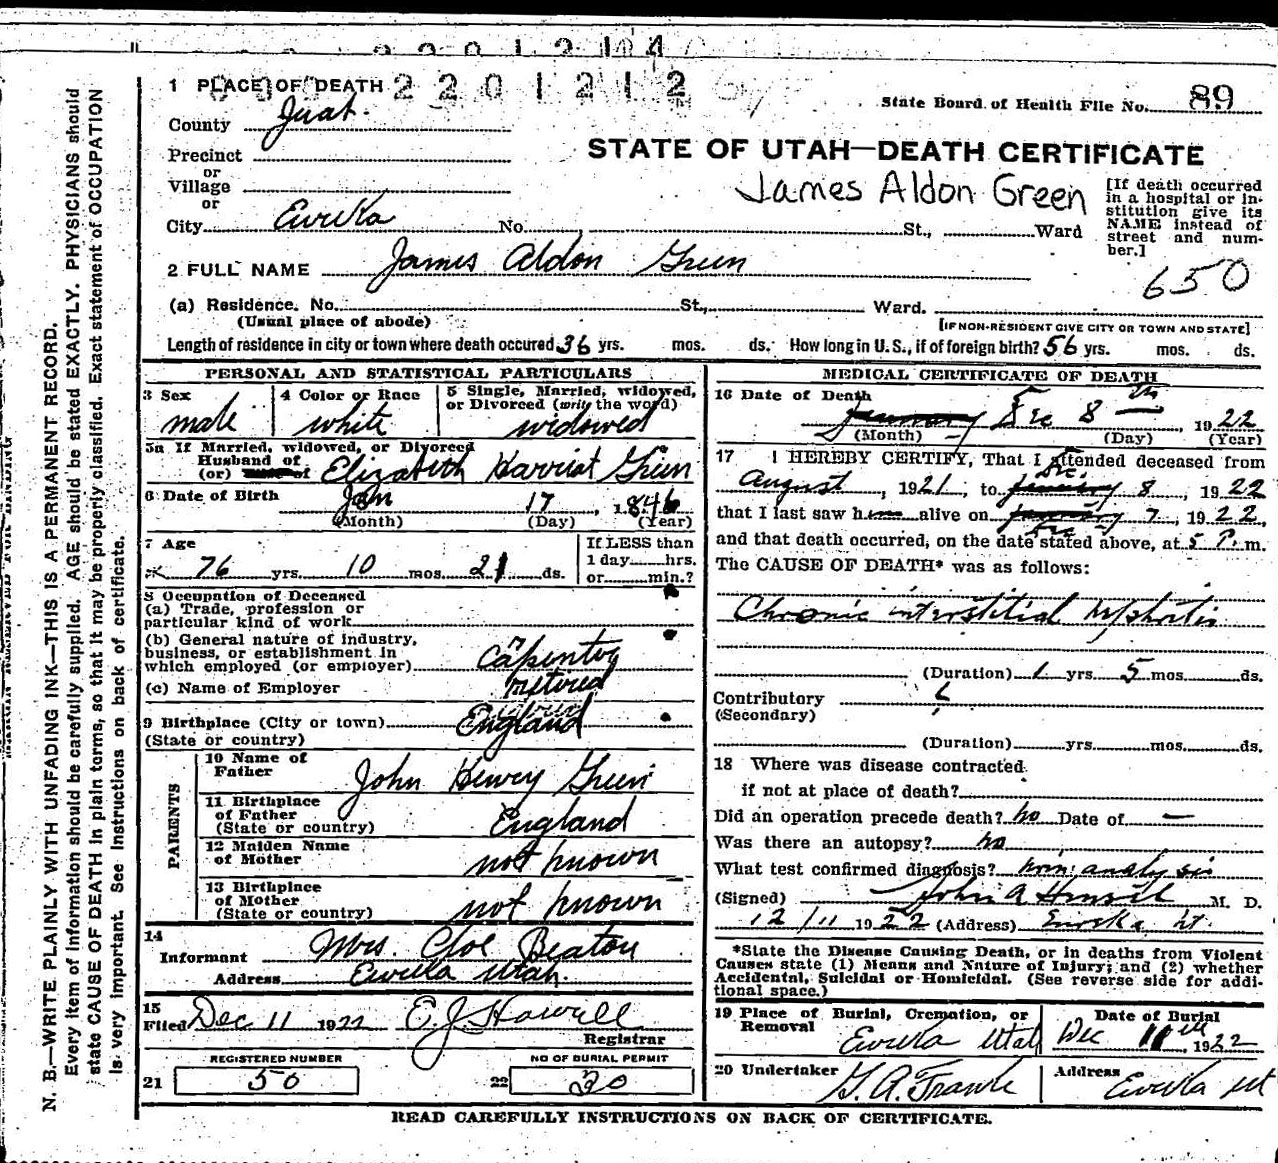 2 2 0 1 2 1 4
1 PLACE OF DEATH 2 2 0 1 2 1 2
State Board of Health File No. 89
County Juab.
STATE OF UTAH—DEATH CERTIFICATE
Precinct
or
Village
or
James Aldon Green
[If death occurred in a hospital or in-
stitution give its
NAME instead of
street and num-
ber.]
City Eureka No. St., Ward
2 FULL NAME James Aldon Green
650
(a) Residence. No. St., Ward.
(Usual place of abode)
[IF NON-RESIDENT GIVE CITY OR TOWN AND STATE]
Length of residence in city or town where death occured 36 yrs. mos. ds. How long in U. S., if of foreign birth? 56 yrs. mos. ds.
PERSONAL AND STATISTICAL PARTICULARS
3 Sex
male
4 Color or Race
white
5 Single, Married, widowed,
or Divorced (write the word)
widowed
5a If Married, widowed, or Divorced
Husband of
(or) of Elizabeth Harriat Green
6 Date of Birth
Jan 17, 1846
(Month) (Day) (Year)
7 Age
76 yrs. 10 mos. 21 ds.
If LESS than
1 day hrs.
or min.?
8 Occupation of Deceased
(a) Trade, profession or
particular kind of work
(b) General nature of industry,
business, or establishment in
which employed (or employer) Capentor
(c) Name of Employer retired
9 Birthplace (City or town) England
(State or country)
PARENTS
10 Name of
Father John Henry Green
11 Birthplace
of Father
(State or country) England
12 Maiden Name
of Mother not known
13 Birthplace
of Mother
(State or country) not known
14
Informant Mrs. Cloe Beaton
Address Eureka Utah.
15
Filed Dec 11 1922 E. J. Howell
Registrar
REGISTERED NUMBER
21 50
NO OF BURIAL PERMIT
22 30
MEDICAL CERTIFICATE OF DEATH
16 Date of Death
January Dec 8th, 1922
(Month) (Day) (Year)
17 I HEREBY CERTIFY, That I attended deceased from
Dec
August, 1921, to January 8, 1922
that I last saw h alive on January 7, 1922,
Dec
and that death occurred, on the date stated above, at 5 P. m.
The CAUSE OF DEATH* was as follows:
Chronic interstitial Nephritis
(Duration) 1 yrs 5 mos. ds.
Contributory
(Secondary)
(Duration) yrs. mos. ds.
18 Where was disease contracted
if not at place of death?
Did an operation precede death? no Date of —
Was there an autopsy? no
What test confirmed diagnosis?
(Signed) John A M. D.
12/11 1922 (Address) Eureka Ut.
*State the Disease Causing Death, or in deaths from Violent
Causes state (1) Means and Nature of Injury; and (2) whether
Accidental, Suicidal or Homicidal. (See reverse side for addi-
tional space.)
19 Place of Burial, Cremation, or
Removal
Eureka Utah
Date of Burial
Dec 11th, 1922
20 Undertaker
Address
Eureka Ut
READ CAREFULLY INSTRUCTIONS ON BACK OF CERTIFICATE.
N. B.—WRITE PLAINLY WITH UNFADING INK—THIS IS A PERMANENT RECORD.
Every item of information should be carefully supplied. AGE should be stated EXACTLY. PHYSICIANS should
state CAUSE OF DEATH in plain terms, so that it may be properly classified. Exact statement of OCCUPATION
is very important. See instructions on back of certificate.